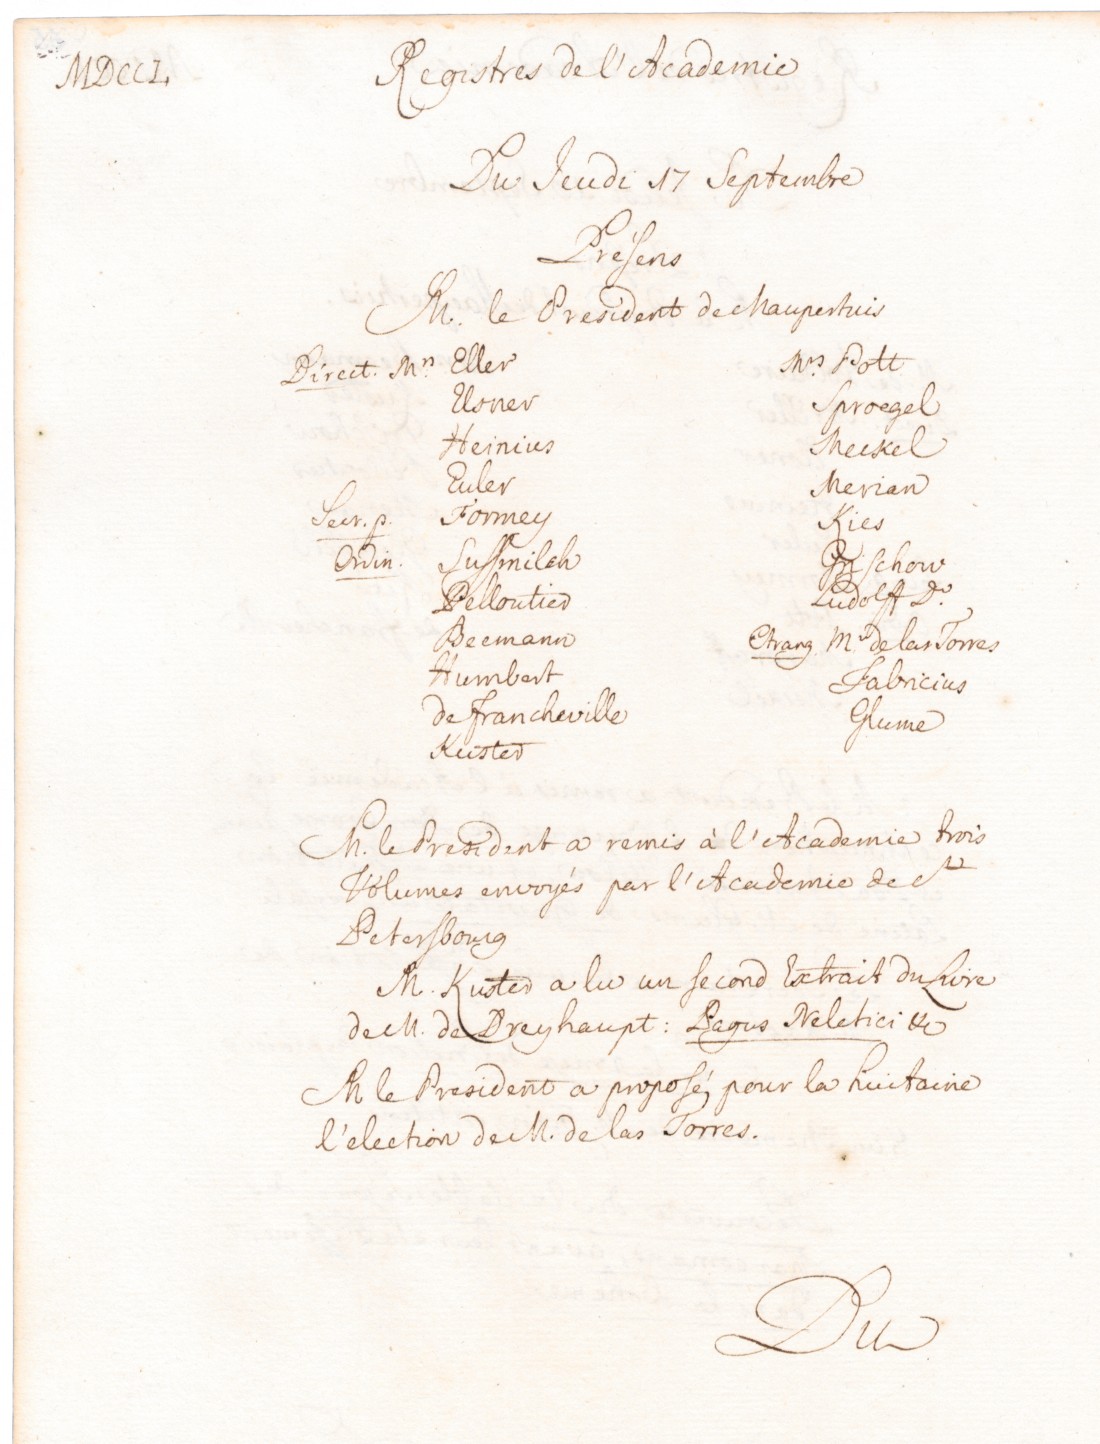 MDCCL
Registres de l'Academie
Du Jeudi 17 Septembre
Présens
M. le President de Maupertuis
Direct. Mrs Eller
Elsner
Heinius
Euler
Secr. p. Formey
Ordin. Sussmilch
Pelloutier
Becmann
Humbert
de Francheville
Kuster
Mrs Pott
Sproegel
Meckel
Merian
Kies
Grischow
Ludolff Dr.
Etrang. Mrs de las Torres
Fabricius
Glume
M. le President a remis à l'Academie trois
Volumes envoyés par l'Academie de St
Petersbourg
M. Kuster a lu un second Extrait du Livre
de M. de Dreyhaupt: Pagus Neletici &c
M le President a proposé pour la huitaine
l'election de M. de las Torres.
Du